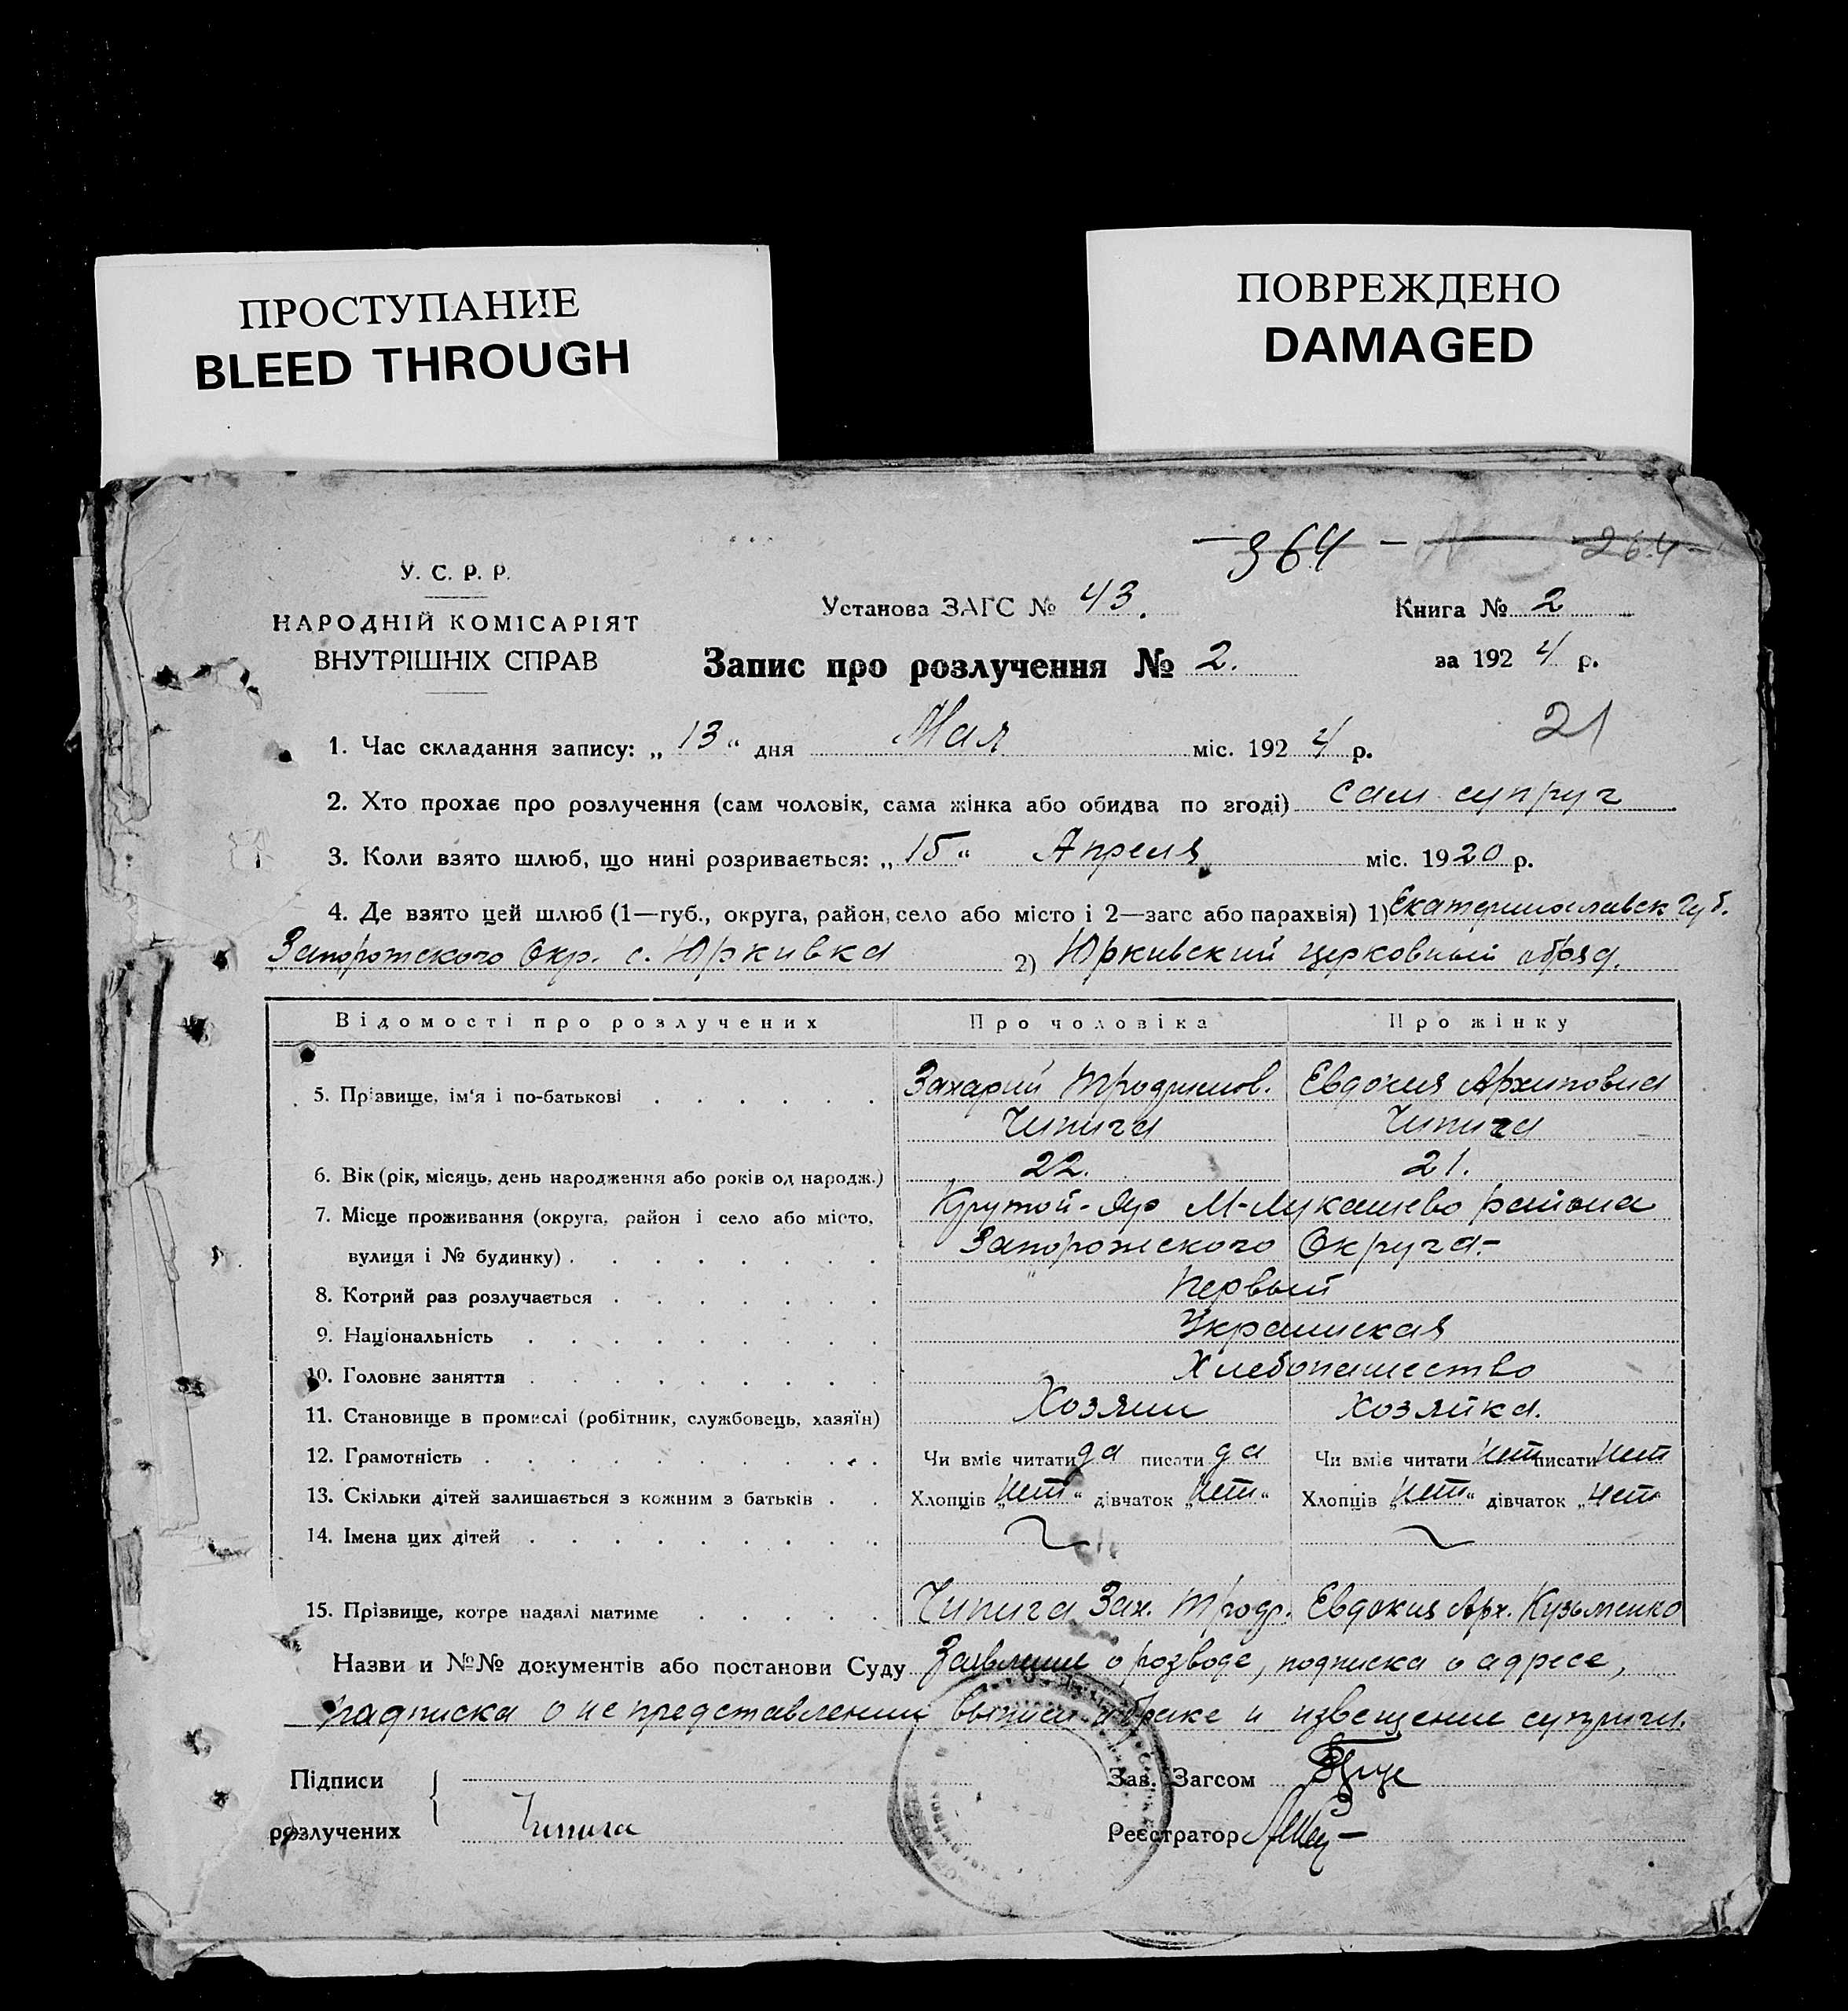 ПРОСТУПАНИЕ
BLEED THROUGH
ПОВРЕЖДЕНО
DAMAGED
364 — 264
У. С. Р. Р.
НАРОДНІЙ КОМІСАРІЯТ
ВНУТРІШНІХ СПРАВ
Установа ЗАГС № 43.
Книга № 2
Запис про розлучення № 2.
за 1924 р.
21
1. Час складання запису: „ 13 “ дня Мая міс. 1924 р.
2. Хто прохає про розлучення (сам чоловік, сама жінка або обидва по згоді) сам супруг
3. Коли взято шлюб, що нині розривається: „ 15 “ Апреля міс. 1920 р.
4. Де взято цей шлюб (1—губ., округа, район, село або місто і 2—загс або парахвія) 1) Екатеринославск Губ.
Запорожского Окр. с. Юркивка 2) Юркивский церковный обряд.
Відомості про розлучених Про чоловіка Про жінку
5. Прізвище, ім'я і по-батькові Захарий Евдокия Архиповна
Чипига Чипига
6. Вік (рік, місяць, день народження або років од народж.) 22. 21.
7. Місце проживання (округа, район і село або місто, Крутой-Яр М-Лукашево района
вулиця і № будинку) Запорожского Округа-
8. Котрий раз розлучається Первый
9. Національність Украинская
10. Головне заняття Хлебопашество
11. Становище в промислі (робітник, службовець, хазяїн) Хозяин Хозяйка.
12. Грамотність Чи вміє читати да писати да Чи вміє читати нет писати нет
13. Скільки дітей залишається з кожним з батьків Хлопців „нет“ дівчаток „нет“ Хлопців „нет“ дівчаток „нет“
14. Імена цих дітей
15. Прізвище, котре надалі матиме Чипига Зах. Евдокия Арх. Кузьменко
Назви и №№ документів або постанови Суду Заявление о розводе, подписка о адресе,
подписка о не представлении выписи о браке и извещение супруги.
Підписи
розлучених Чипига
Зав. Загсом
Реєстратор